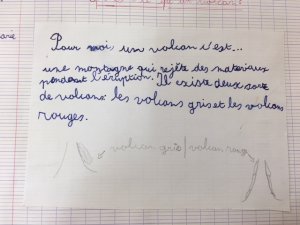 Pour mois un volcan c'est...
une montagne qui rejète des materiaux
pendant l'éruption. Il existe deux sorte
de volcans: les volcans gris et les volcans
rouges.
volcan gris | volcan rouge